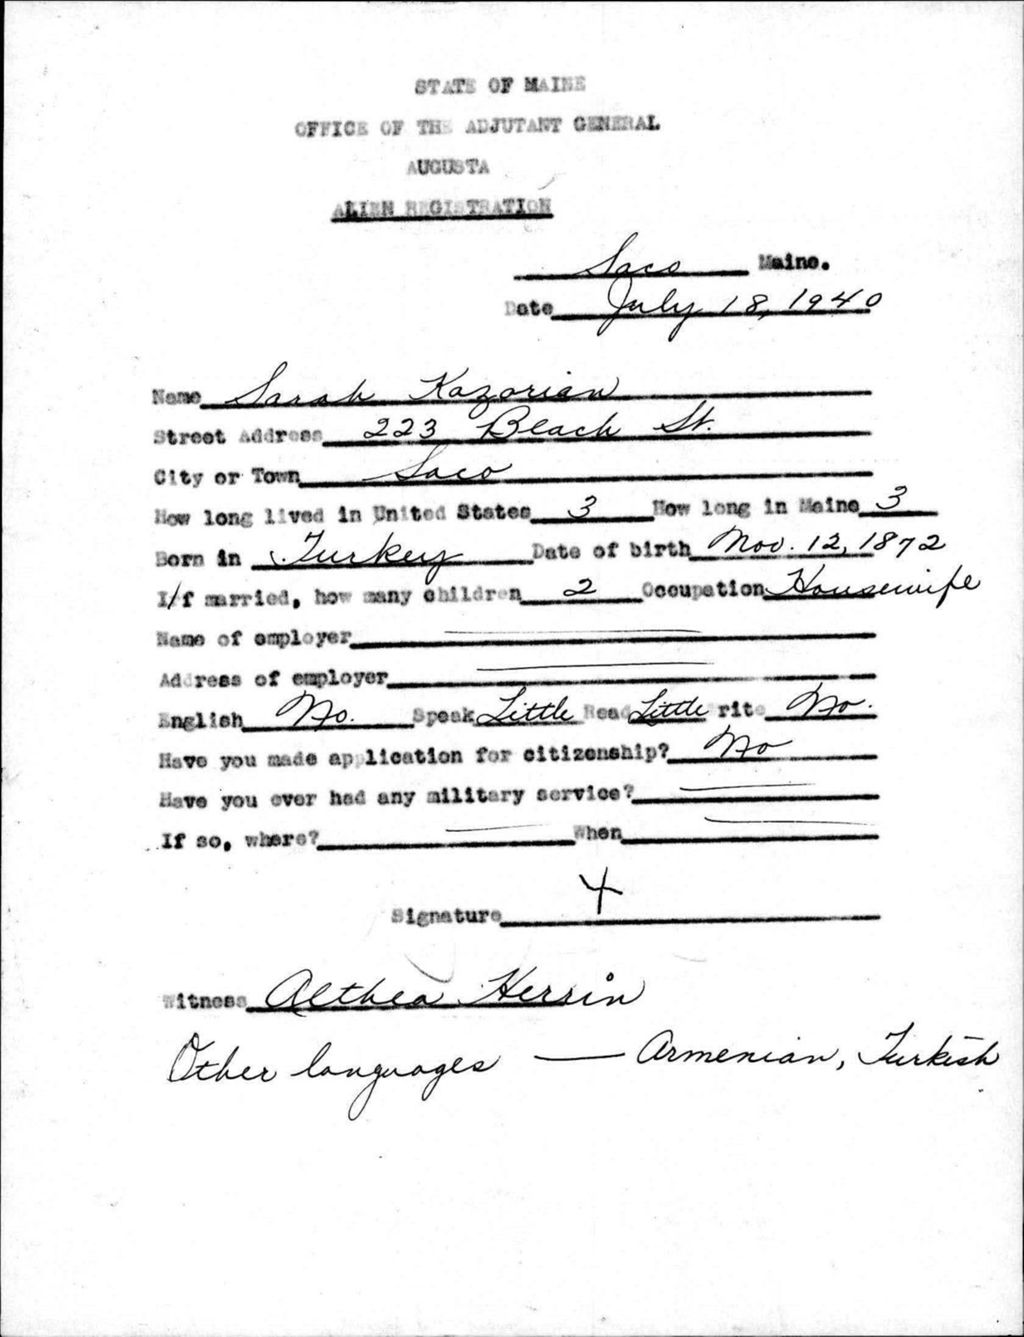 STATE OF MAINE
OFFICE OF THE ADJUTANT GENERAL
AUGUSTA
ALIEN REGISTRATION
Saco Maine.
Date July 18, 1940
Name Sarah Kazorian
Street Address 223 Beach St.
City or Town Saco
How long lived in United States 3 How long in Maine 3
Born in Turkey Date of birth Nov. 12, 1872
If married, how many children 2 Occupation Housewife
Name of employer
Address of employer
English No. Speak Little Read Little Write No.
Have you made application for citizenship? No
Have you ever had any military service?
If so, where? When
Signature X
Witness Althea Herrin
Other languages — Armenian, Turkish